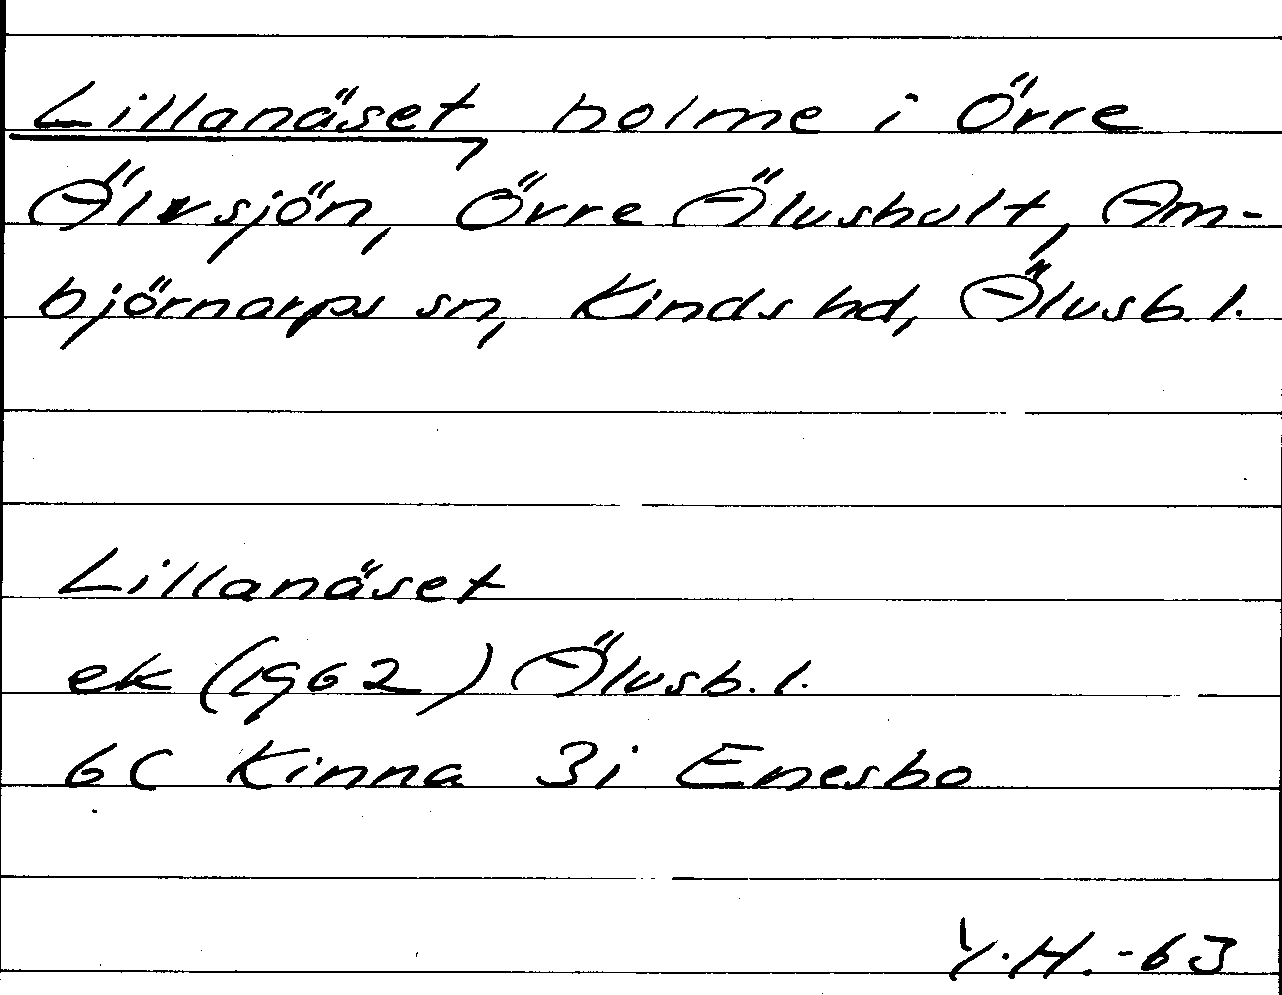 Lillanäset, holme i Övre
Älvsjön, Övre Älvshult, Am-
björnarps sn, Kinds hd, Älvsb. l.
Lillanäset
ek (1962) Älvsb. l.
6C Kinna 3i Enesbo
Y.H. -63